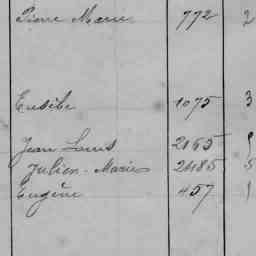 Pierre Marie 772 2
Eusèbe 1075 3
Jean Louis 2165
Julien-Marie 2485 5
Eugène 457 1